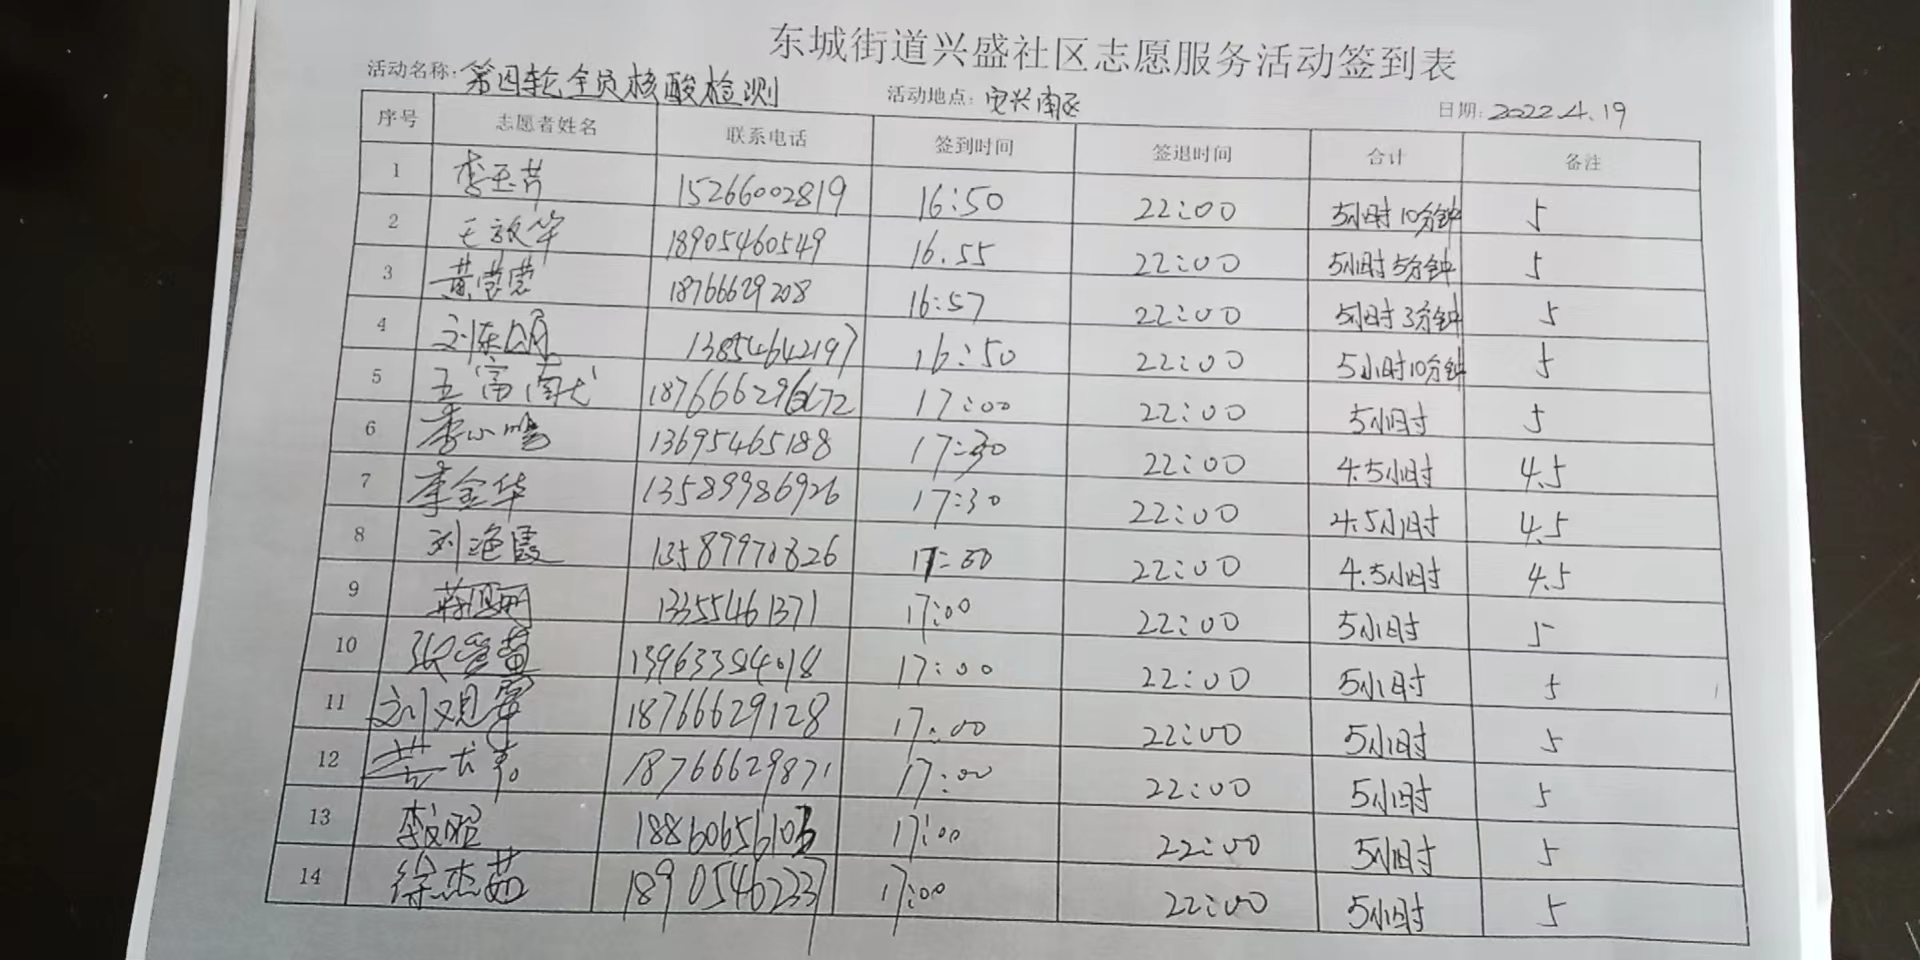 东城街道兴盛社区志愿服务活动签到表
活动名称:第四轮全员核酸检测 活动地点:安兴南区 日期:2022.4.19
序号 志愿者姓名 联系电话 签到时间 签退时间 合计 备注
1 李玉芳 15266002819 16:50 22:00 5小时10分钟 5
2 王 18905460549 16.55 22:00 5小时5分钟 5
3 黄莹莹 18766629208 16:57 22:00 5小时3分钟 5
4 刘东 13854642197 16:50 22:00 5小时10分钟 5
5 187666296 17:00 22:00 5小时 5
6 李 13695465188 17:30 22:00 4.5小时 4.5
7 李金华 13589986926 17:30 22:00 4.5小时 4.5
8 刘艳霞 13589970826 17:30 22:00 4.5小时 4.5
9 13355461371 17:00 22:00 5小时 5
10 张 13963384018 17:00 22:00 5小时 5
11 刘观军 18766629128 17:00 22:00 5小时 5
12 18766629871 17:00 22:00 5小时 5
13 李 1886065610 17:00 22:00 5小时 5
14 徐杰茹 18905462237 17:00 22:00 5小时 5